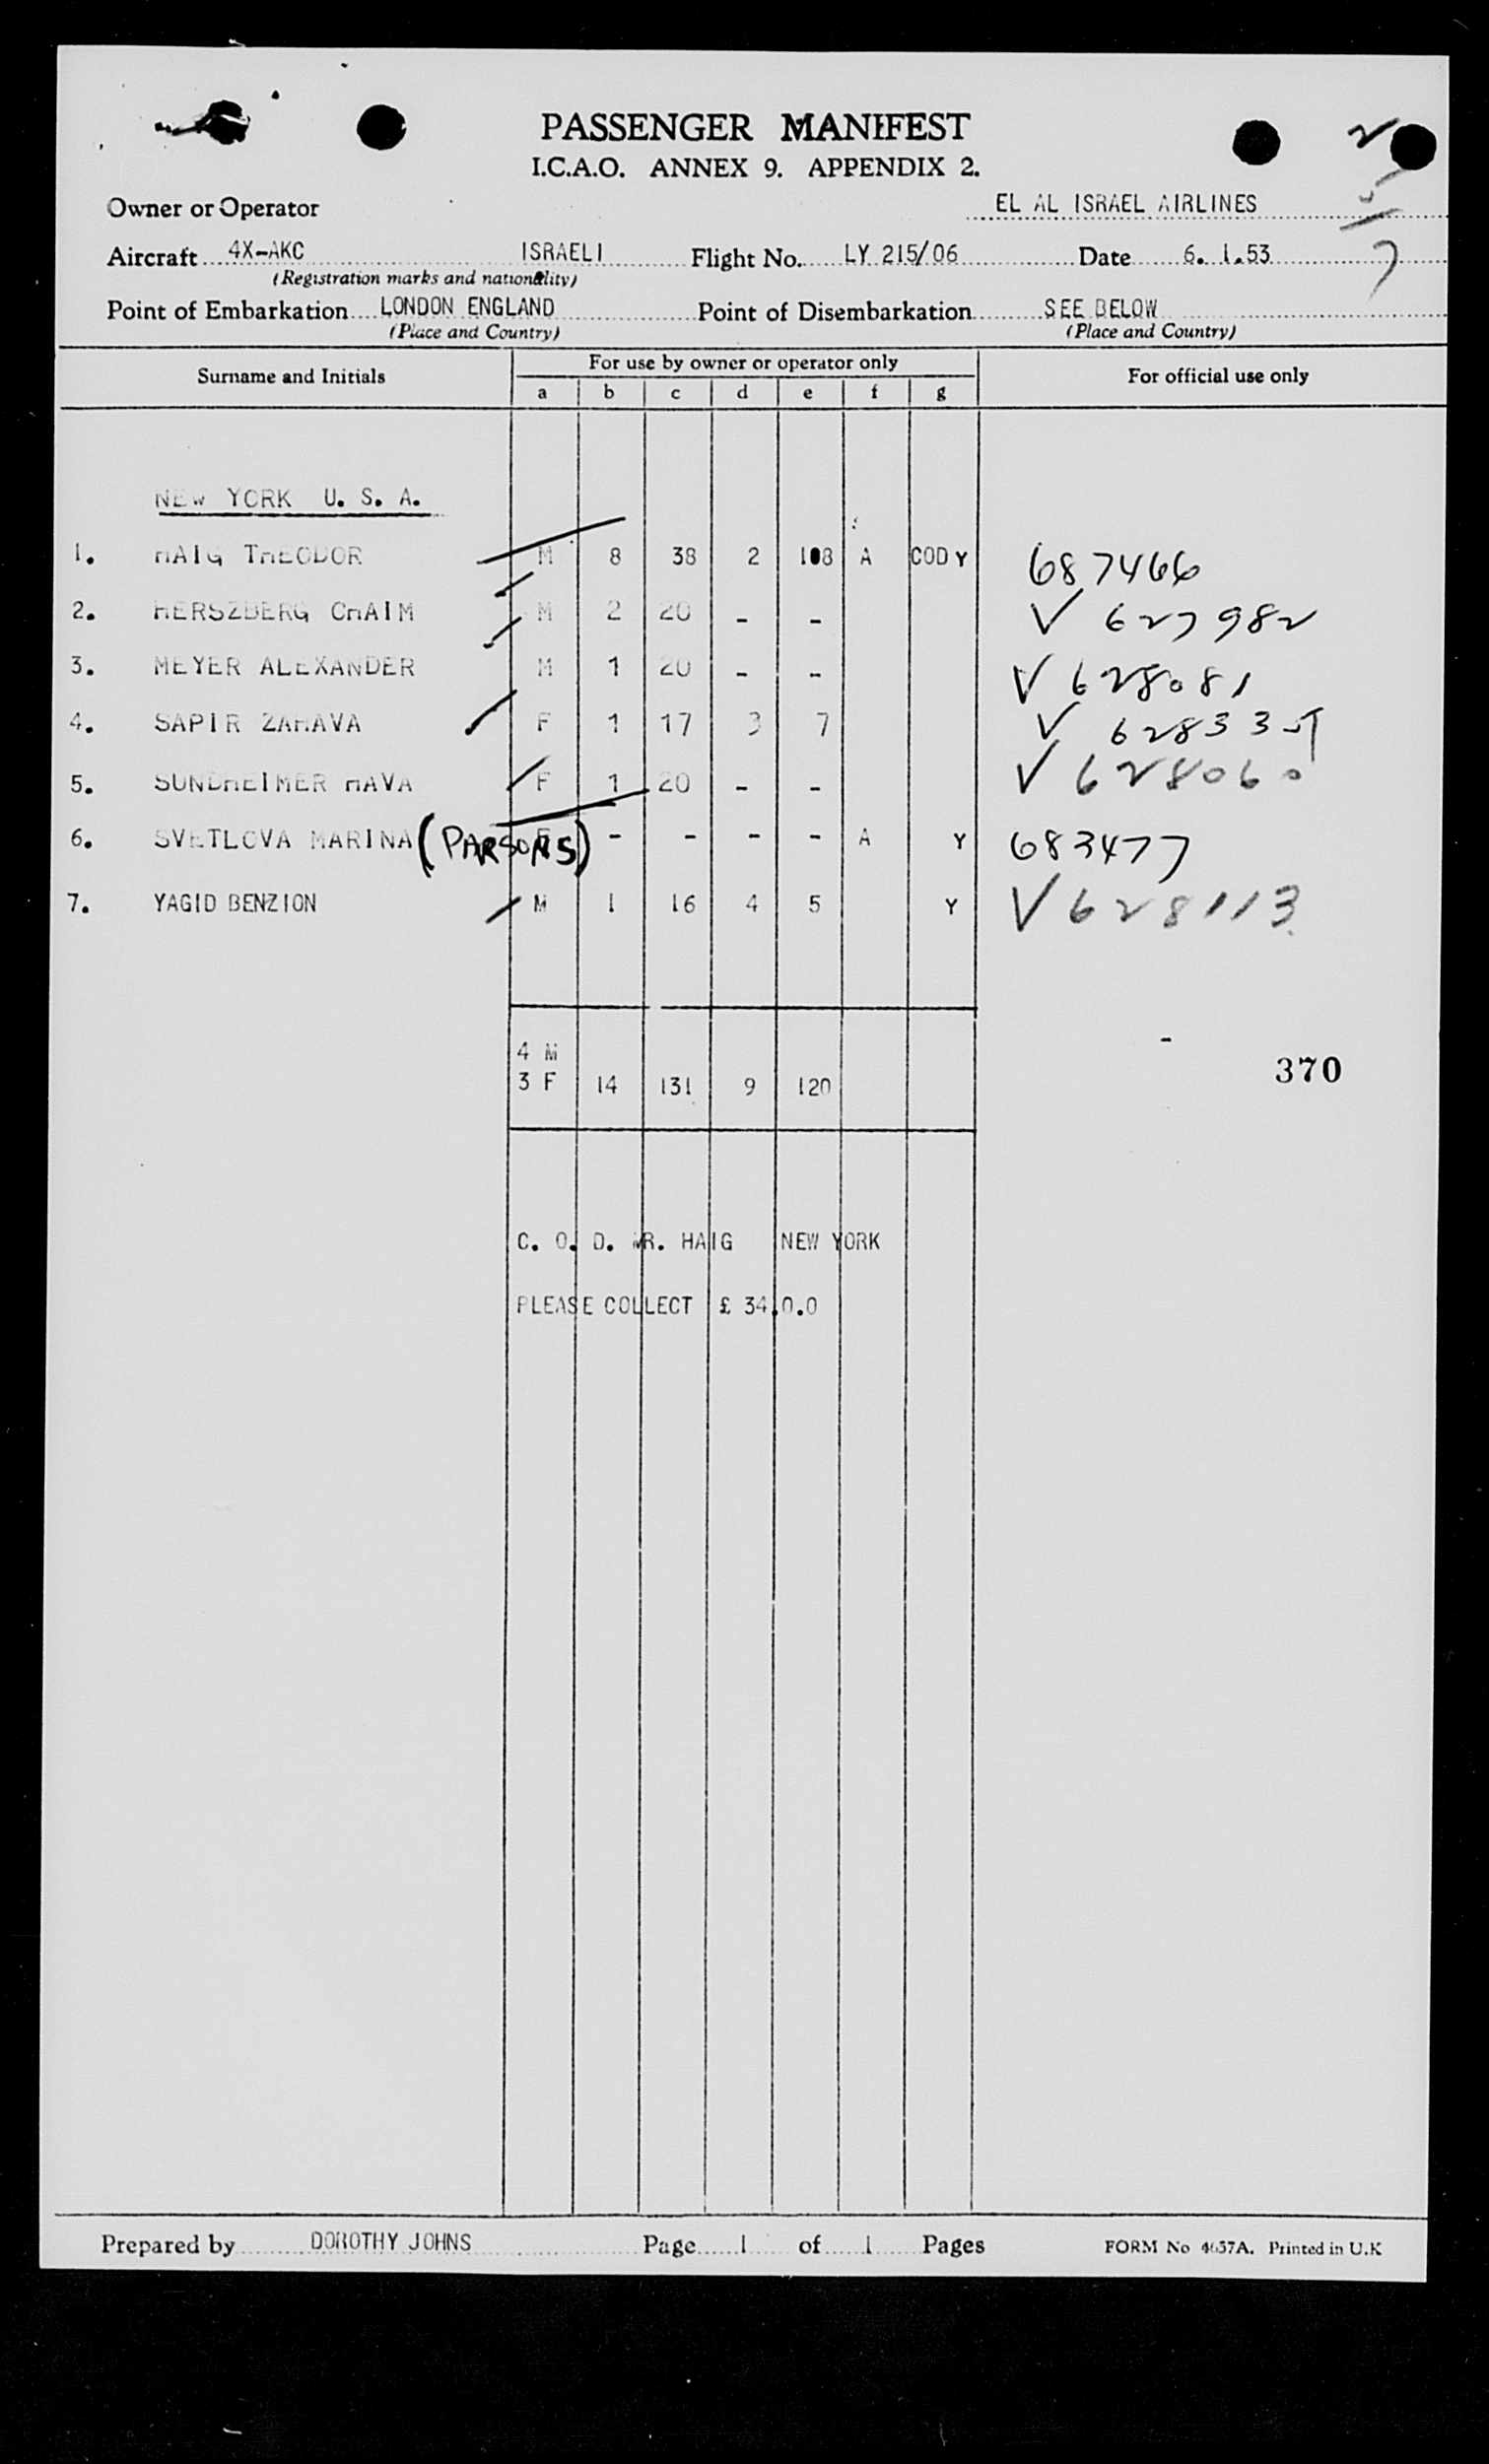 PASSENGER MANIFEST
I.C.A.O. ANNEX 9. APPENDIX 2.
Owner or Operator EL AL ISRAEL AIRLINES
Aircraft 4X-AKC ISRAELI Flight No. LY 215/06 Date 6. 1.53
(Registration marks and nationality)
Point of Embarkation LONDON ENGLAND Point of Disembarkation SEE BELOW
(Place and Country) (Place and Country)
Surname and Initials For use by owner or operator only For official use only
a b c d e f g
NEW YORK U. S. A.
1. HAIG THEODOR M 8 38 2 108 A COD Y 687466
2. HERSZBERG CHAIM M 2 20 - - V 627982
3. MEYER ALEXANDER M 1 20 - - V 628081
4. SAPIR ZAHAVA F 1 17 3 7 V
5. SUNDHEIMER HAVA F 1 20 - - V 628060
6. SVETLOVA MARINA (PARSONS) F - - - - A Y 683477
7. YAGID BENZION M 1 16 4 5 Y V 628113
4 M
3 F 14 131 9 120
370
C. O. D. MR. HAIG NEW YORK
PLEASE COLLECT £ 34.0.0
Prepared by DOROTHY JOHNS Page 1 of 1 Pages FORM No 4657A. Printed in U.K